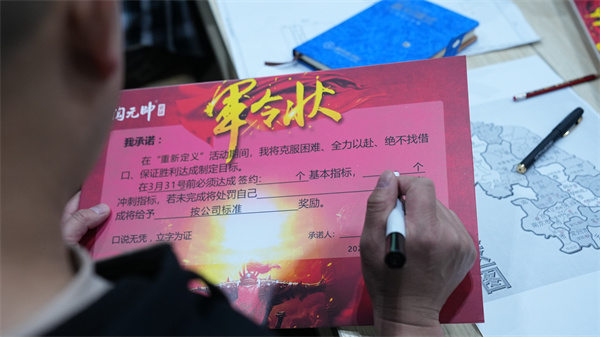 元帅
军令状
我承诺:
在“重新定义”活动期间, 我将克服困难、全力以赴、绝不找借
口、保证胜利达成制定目标。
在3月31号前必须达成 签约: 个 基本指标, 个
冲刺指标, 若未完成将处罚自己
成将给予 按公司标准 奖励。
口说无凭, 立字为证
承诺人: